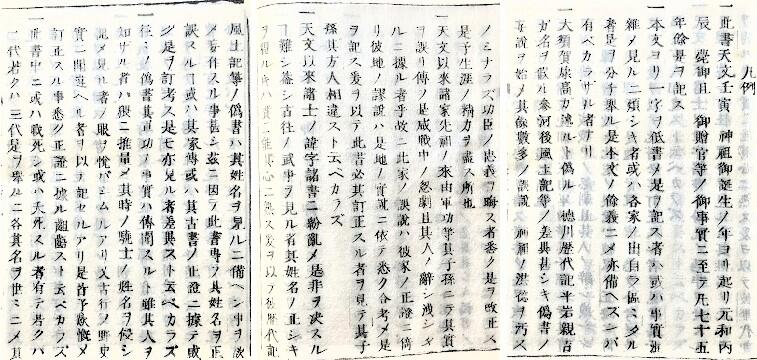 凡例
一此書天文壬寅　神祖御誕生ノ年ヨリ起リ元和丙
辰　薨御且　御贈官等ノ御事實ニ至テ凡七十五
年餘是ヲ記ス
一本文ヨリ一字ヲ低書メ是ヲ記ス者ハ或ハ事實混
雜メ見ルニ煩シキ者或ハ各家ノ出自ラ區ミタル
者是ヲ分チ舉ル是本文ノ餘義ニメ亦備ヘズンバ
有ベカラザル者ナリ
一大須賀康高カ述ルト偽ル　徳川歴代記平第親吉
カ名ヲ假ル参河後風土記等ノ差異甚シキ偽書ノ
妄説ヲ始メ其餘數多ノ誤説　神祖ノ洪徳ヲ汚ス
ノミナラズ功臣ノ忠義ヲ晦ス者悉ク是ヲ改正ス
是予生涯ノ精力ヲ盡ス所也
一天文以來諸家先祖ノ來由軍功等其子孫ニテ其實
ヲ誤リ傳ノ是戚戰中ノ怱劇且其人ノ辭ノ淺シキ
ルニ據ル者乎故ニ此家ノ誤説ハ彼家ノ正證ニ倚
リ彼地ノ謬説ハ是地ノ實説ニ依テ悉ク合考メ是
ヲ記ス爰ヲ以テ此書必其訂正スル者ヲ見テ其子
孫其方人相違スト云ベカラズ
一天文以來諸士ノ諱字諸書ニ紛亂メ是非ヲ決スル
ヿ難シ蓋シ古往ノ武事ヲ見ル者其姓名ノ正シキ
風土記等ノ偽書ハ其姓名ヲ見ルニ備ヘシ事ヲ
メ妄作スル事甚シ茲ニ因テ此書専ラ其姓名ヲ正
誤スルヿ或ハ其家傳或ハ其古書ノ正證ニ據テ或
ク是ヲ訂考ス是モ亦見ル者差異スト云ベカラズ
一往ミノ偽書其軍功ノ事實ハ傳聞スルト雖其人ヲ
知サル者ハ猥ニ推量メ其時ノ騎士ノ姓名ヲ侵シ
記メ見ル者ノ眼ヲ悦バシムルアリ又古行ノ野史
實ニ聞違ヘル者ヲ以テ記セルアリ是皆予歎慨メ
訂正スル事悉ク正證ニ據ル齟齬スト云ベカラズ
一此書中ニ或ハ戰死シ或ハ夭死スル者有テ君クハ
二代若クハ三代是ヲ舉ルニ各其名ヲ世ミニメ其